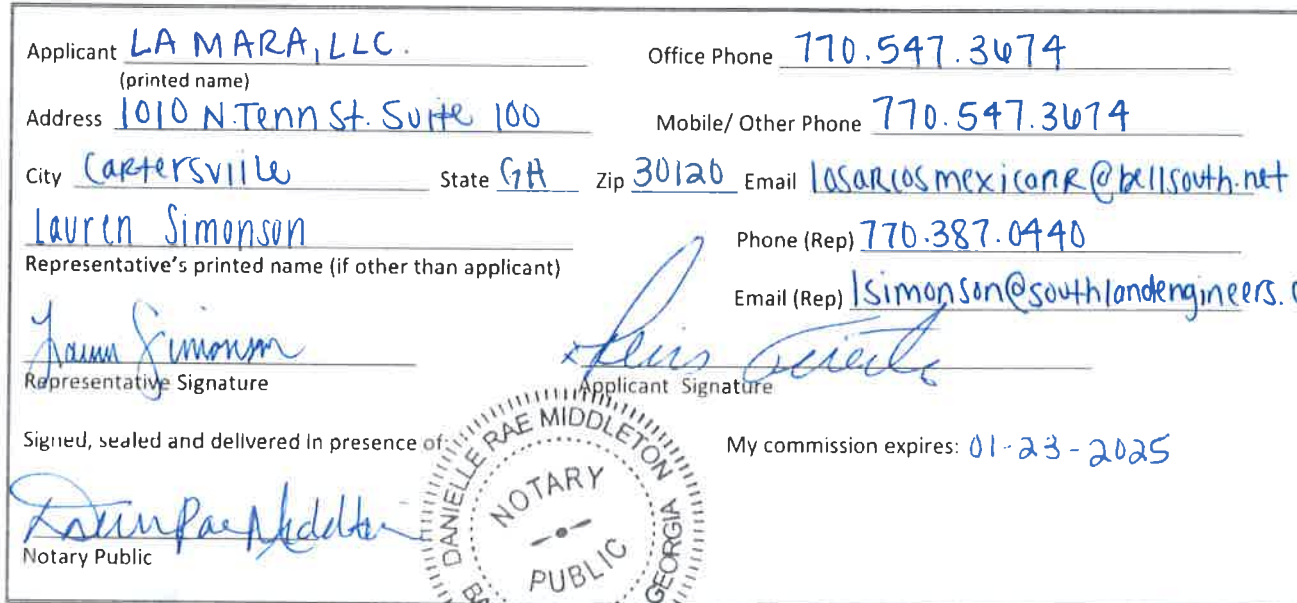 Applicant LA MARA, LLC. Office Phone 770.547.3674
(printed name)
Address 1010 N. Tenn St. Suite 100 Mobile/ Other Phone 770.547.3674
City Cartersville State GA Zip 30120 Email losarcosmexicanR@bellsouth.net
Lauren Simonson Phone (Rep) 770.387.0440
Representative's printed name (if other than applicant)
Email (Rep) lsimonson@southlandengineers.
Lauren Simonson
Representative Signature Applicant Signature
Signed, sealed and delivered in presence of: My commission expires: 01-23-2025
Notary Public
DANIELLE RAE MIDDLETON
NOTARY
PUBLIC
GEORGIA